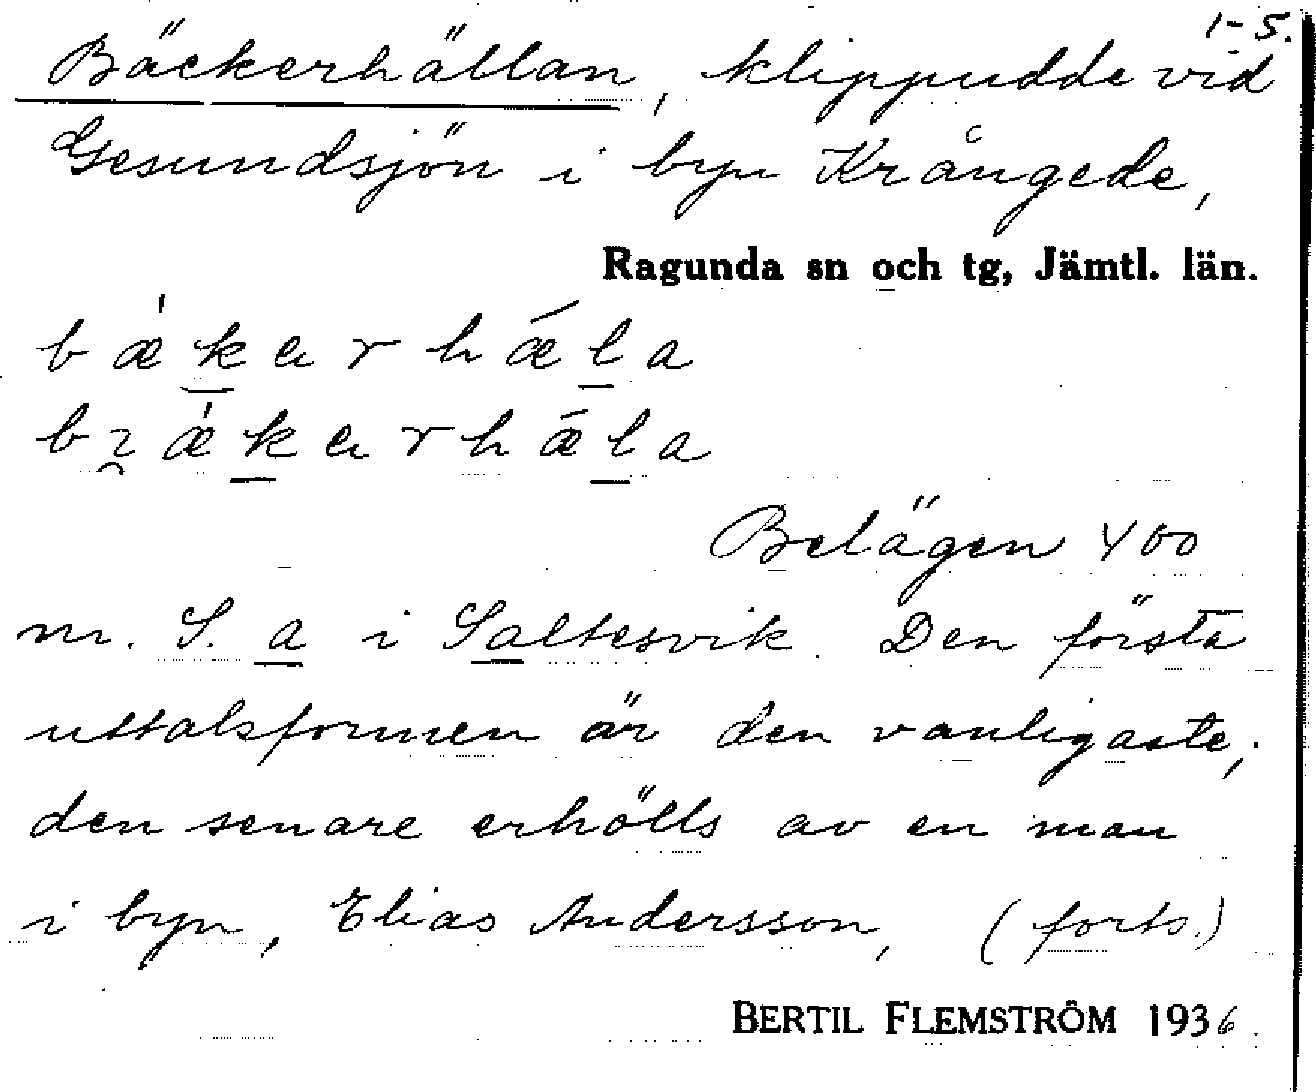 1-5.
Bäckerhällan, klippudde vid
Gesundsjön i byn Krångede,
Ragunda sn och tg, Jämtl. län.
bækerhæla
brækerhæla
Belägen 400
m. S. a i Saltesvik. Den första
uttalsformen är den vanligaste,
den senare erhölls av en man
i byn, Elias Andersson, (forts.)
BERTIL FLEMSTRÖM 1936.